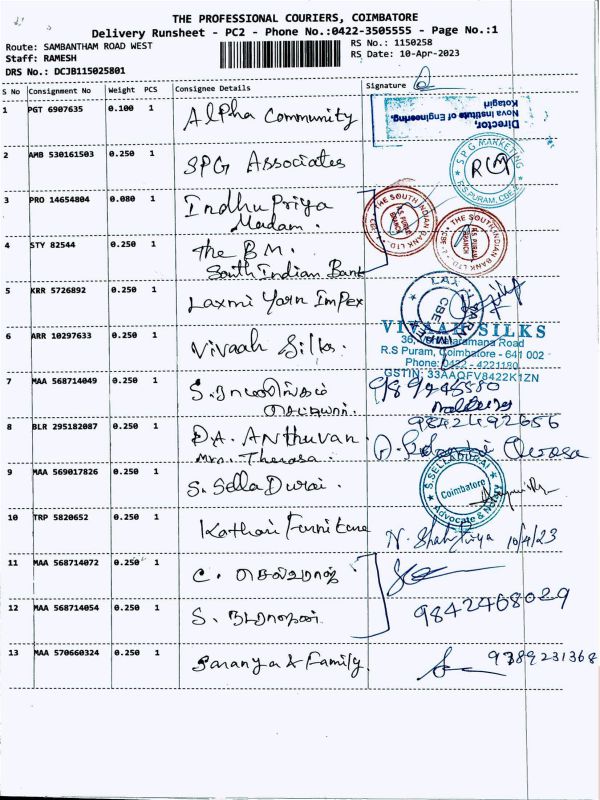 THE PROFESSIONAL COURIERS, COIMBATORE
Delivery Runsheet - PC2 - Phone No.:0422-3505555 - Page No.:1
Route: SAMBANTHAM ROAD WEST
RS No.: 1150258
Staff: RAMESH
RS Date: 10-Apr-2023
DRS No.: DCJB115025801
S No Consignment No Weight PCS Consignee Details Signature
1 PGT 6907635 0.100 1 Alpha Community
Director,
Nova Institute of Engineering,
Kotagiri
2 AMB 530161503 0.250 1 SPG Associates
SPG MARKETING
R.S PURAM, CBE
3 PRO 14654804 0.080 1 Indhu Priya
Madam.
THE SOUTH INDIAN BANK LTD.
R.S. PURAM
BRANCH
CBE
THE SOUTH INDIAN BANK LTD.
R.S. PURAM
BRANCH
CBE
4 STY 82544 0.250 1 The B M.
South Indian Bank
5 KRR 5726892 0.250 1 Laxmi Yarn Impex
CBE
6 ARR 10297633 0.250 1 Vivaah Silks.
VIVAAH SILKS
Road
R.S Puram, Coimbatore - 641 002
Phone: 0422 - 4221180
GSTIN: 33AAQFV8422K1ZN
7 MAA 568714049 0.250 1 S.
8 BLR 295182087 0.250 1 D.A. Anthuvan
Mrs. Therasa.
9842492656
9 MAA 569017826 0.250 1 S. Sella Durai.
S.SELLADURAI
Coimbatore
Advocate & Notary
10 TRP 5820652 0.250 1 Kothari Furniture
10/4/23
11 MAA 568714072 0.250 1 C. செல்வராஜ்
12 MAA 568714054 0.250 1 S. நடராஜன்.
9842468029
13 MAA 570660324 0.250 1 Saranya & Family.
9389231368